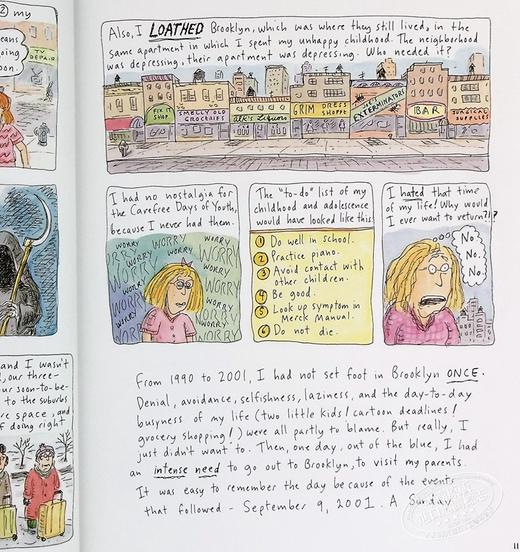 ② my
eans
going
oon.
TV
REPAIR
and I wasn't
, our three-
ur soon-to-be-
to the suburbs
re space, and
f doing right
Also, I LOATHED Brooklyn, which was where they still lived, in the
same apartment in which I spent my unhappy childhood. The neighborhood
was depressing, their apartment was depressing. Who needed it?
FIX IT
SHOP
SMELLY OLD
GROCERIES
Liquors
GRIM DRESS
SHOPPE
EXTERMINATORS
BAR
SUPPLIES
I had no nostalgia for
the Carefree Days of Youth,
because I never had them.
WORRY WORRY WORRY
WORRY WORRY
WORRY WORRY
WORRY WORRY
WORRY WORRY
The "to-do" list of my
childhood and adolescence
would have looked like this:
① Do well in school.
② Practice piano.
③ Avoid contact with
other children.
④ Be good.
⑤ Look up symptom in
Merck Manual.
⑥ Do not die.
I hated that time
of my life! Why would
I ever want to return?!?
No.
No.
No.
From 1990 to 2001, I had not set foot in Brooklyn ONCE.
Denial, avoidance, selfishness, laziness, and the day-to-day
busyness of my life (two little kids! cartoon deadlines!
grocery shopping!) were all partly to blame. But really, I
just didn't want to. Then, one day, out of the blue, I had
an intense need to go out to Brooklyn, to visit my parents.
It was easy to remember the day because of the events
that followed - September 9, 2001. A Sunday
11